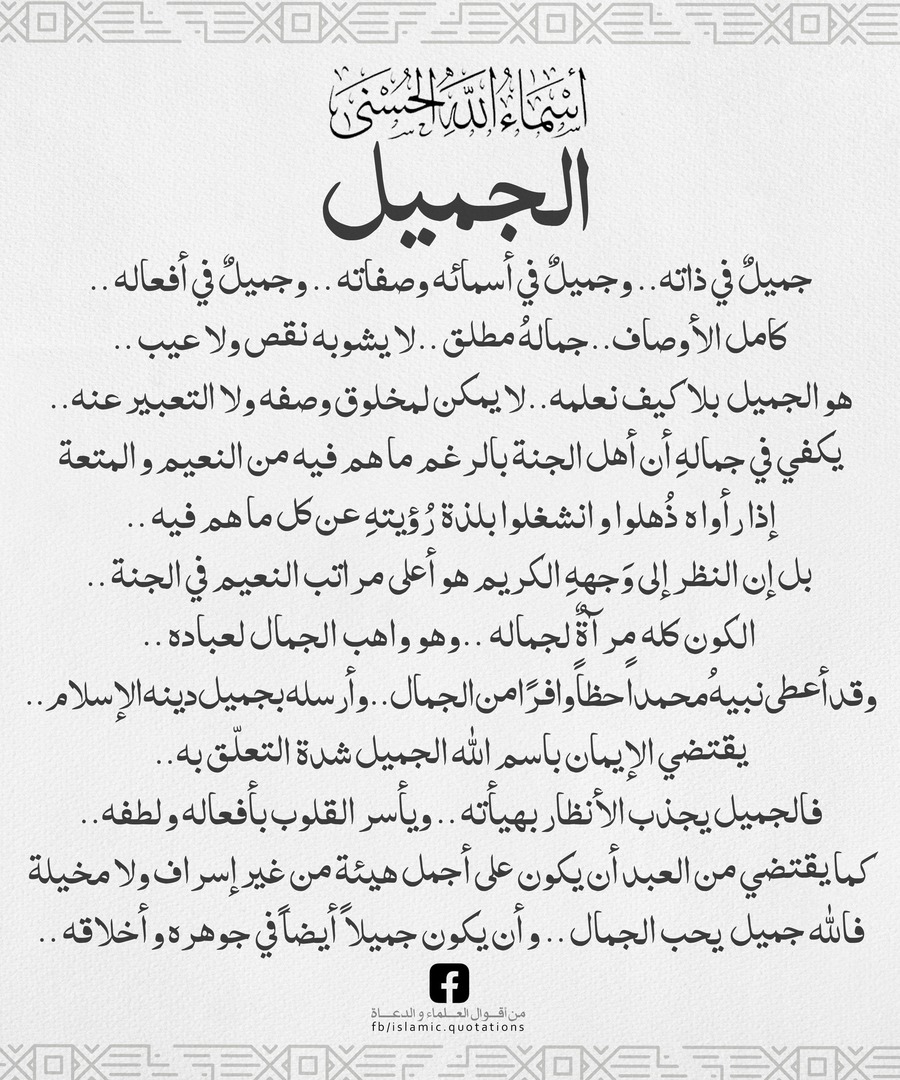 أَسْمَاءُ اللَّهِ الْحُسْنَى
الجميل
جميلٌ في ذاته.. وجميلٌ في أسمائه وصفاته .. وجميلٌ في أفعاله ..
كامل الأوصاف.. جمالهُ مطلق .. لا يشوبه نقص ولا عيب ..
هو الجميل بلا كيف نعلمه.. لا يمكن لمخلوق وصفه ولا التعبير عنه..
يكفي في جمالهِ أن أهل الجنة بالرغم ما هم فيه من النعيم و المتعة
إذا رأواه ذُهلوا و انشغلوا بلذة رُؤيتهِ عن كل ما هم فيه ..
بل إن النظر إلى وَجههِ الكريم هو أعلى مراتب النعيم في الجنة ..
الكون كله مرآةٌ لجماله .. وهو واهب الجمال لعباده ..
وقد أعطى نبيهُ محمداً حظاً وافرًا من الجمال.. وأرسله بجميل دينه الإسلام ..
يقتضي الإيمان باسم الله الجميل شدة التعلّق به..
فالجميل يجذب الأنظار بهيأته .. ويأسر القلوب بأفعاله و لطفه..
كما يقتضي من العبد أن يكون على أجمل هيئة من غير إسراف ولا مخيلة
فالله جميل يحب الجمال .. و أن يكون جميلاً أيضاً في جوهره و أخلاقه ..
من أقوال العلماء و الدعاة
fb/islamic.quotations